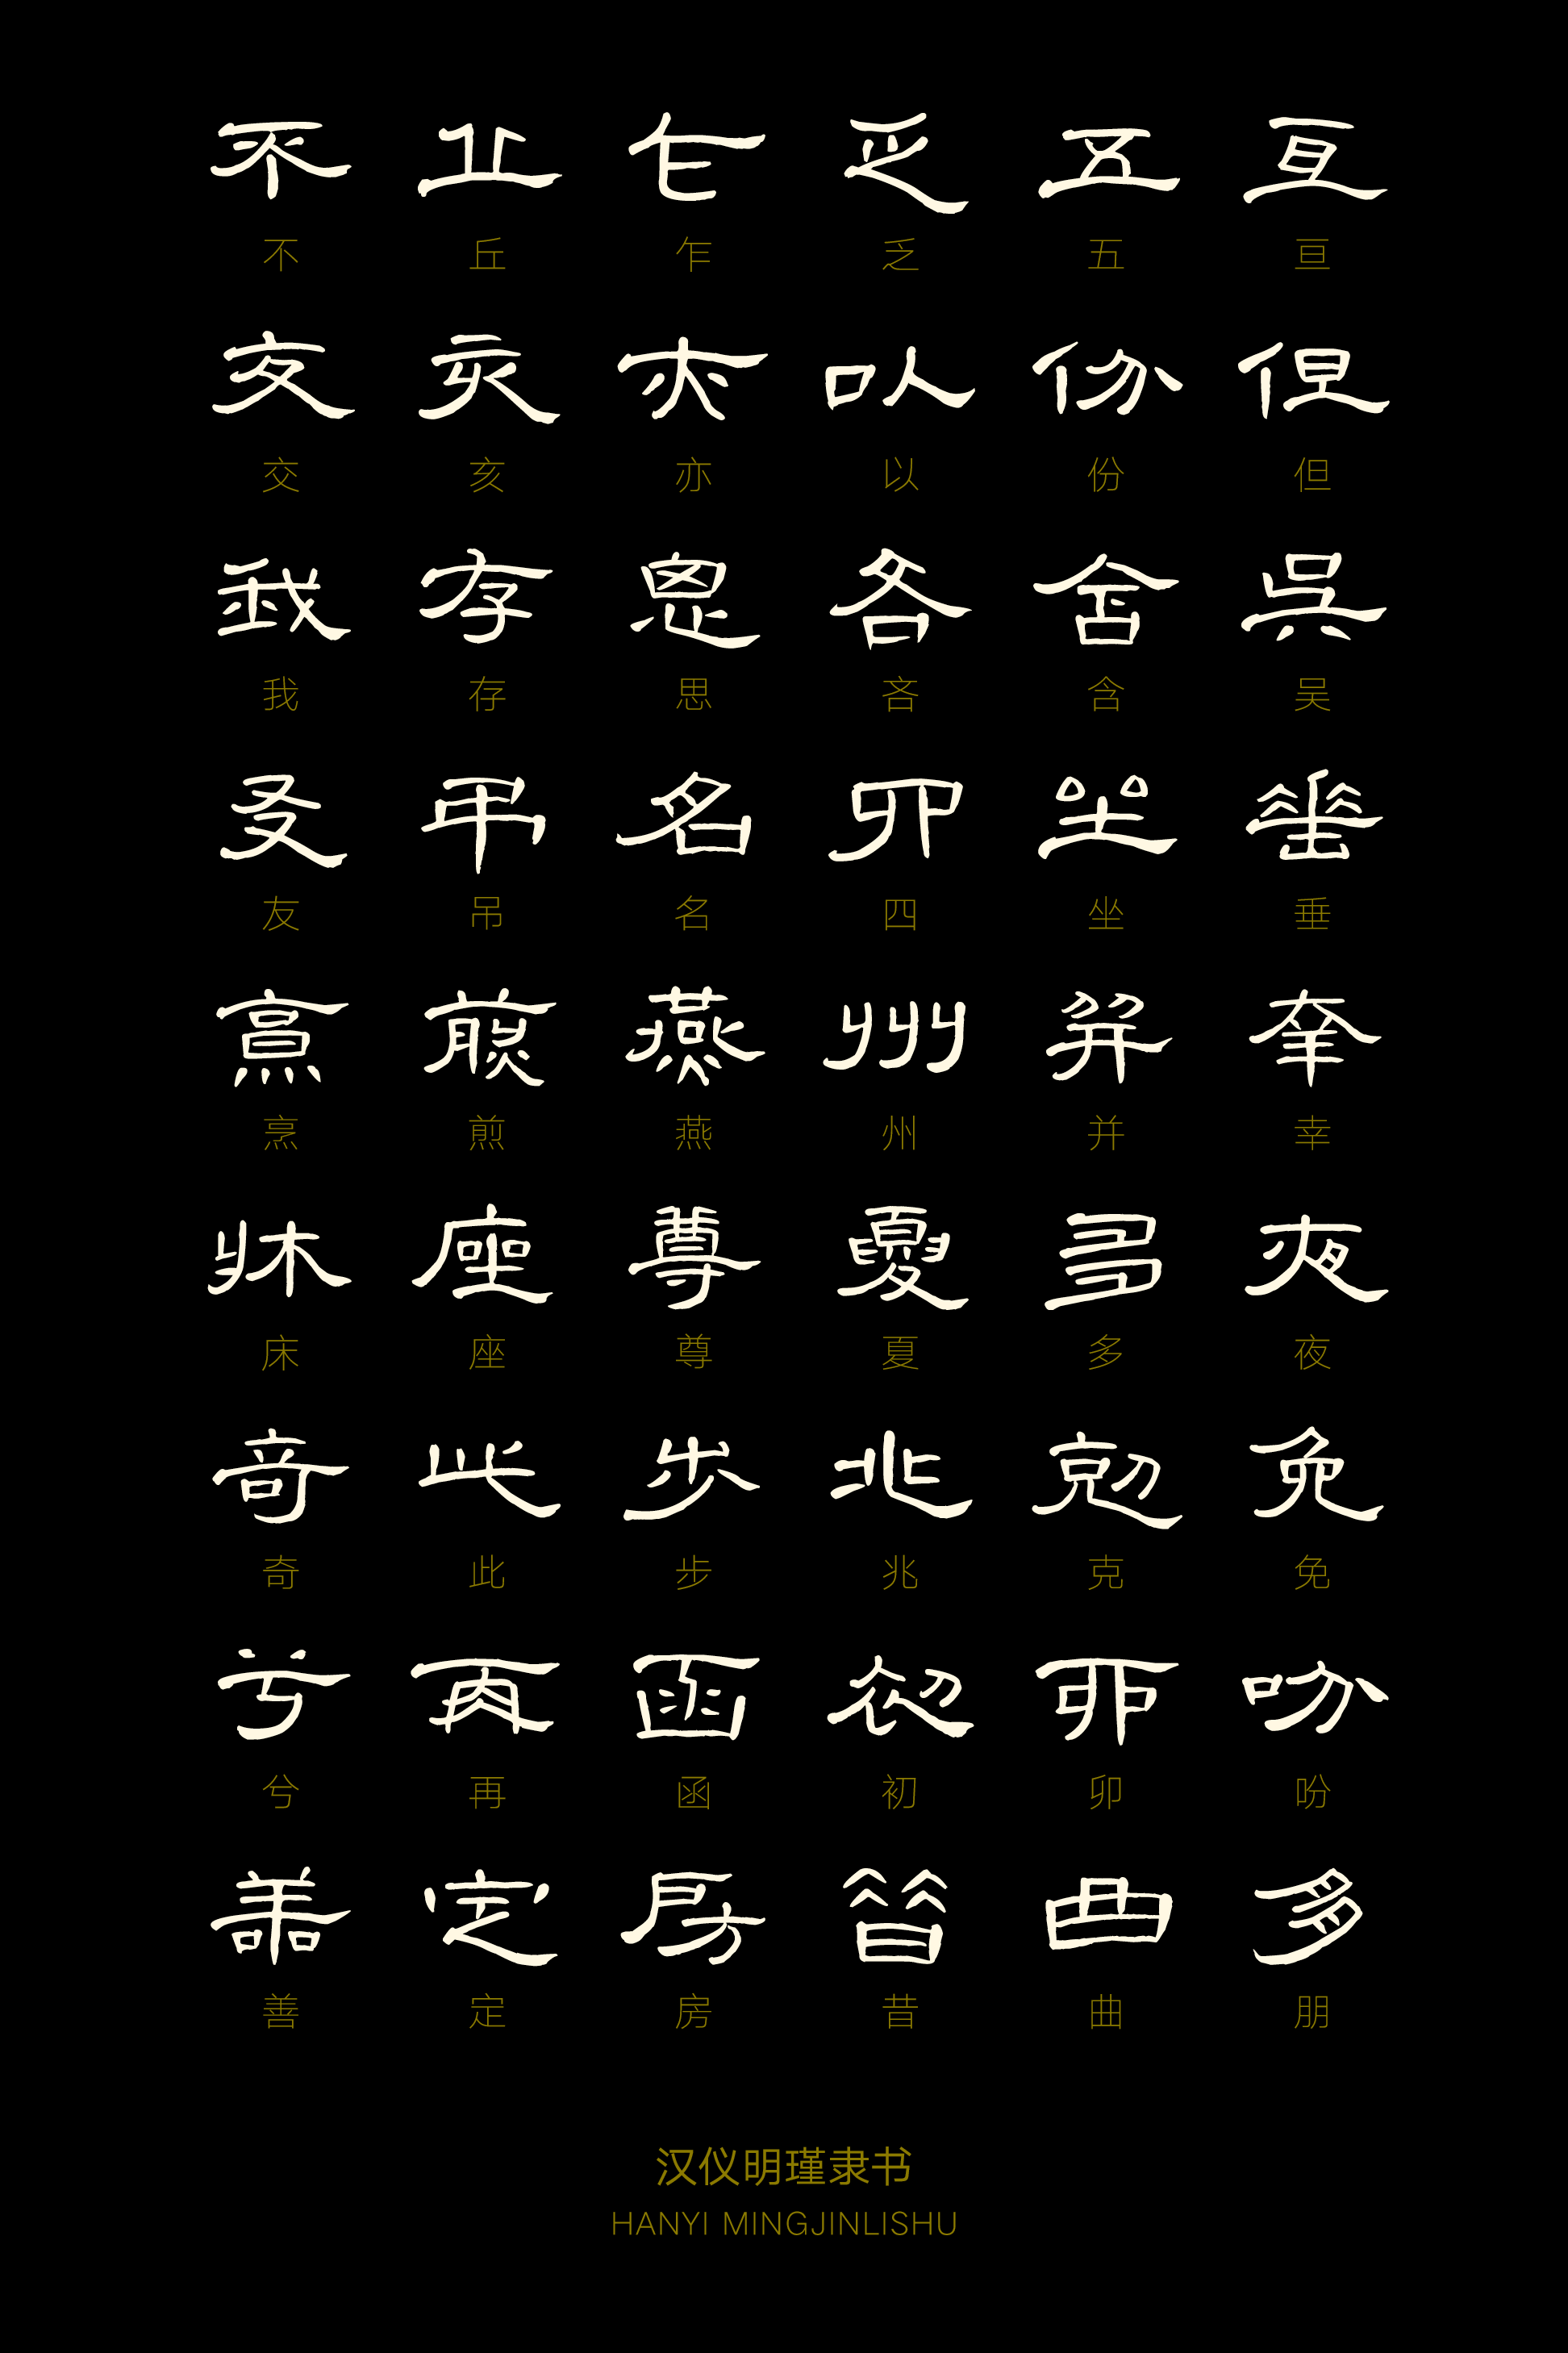 不 丘 乍 乏 五 亘
不 丘 乍 乏 五 亘
交 亥 亦 以 份 但
交 亥 亦 以 份 但
我 存 思 吝 含 吴
我 存 思 吝 含 吴
友 吊 名 四 坐 垂
友 吊 名 四 坐 垂
烹 煎 燕 州 并 幸
烹 煎 燕 州 并 幸
床 座 尊 夏 多 夜
床 座 尊 夏 多 夜
奇 此 步 兆 克 免
奇 此 步 兆 克 免
兮 再 函 初 卯 吩
兮 再 函 初 卯 吩
善 定 房 昔 曲 朋
善 定 房 昔 曲 朋
汉仪明瑾隶书
HANYI MINGJINLISHU